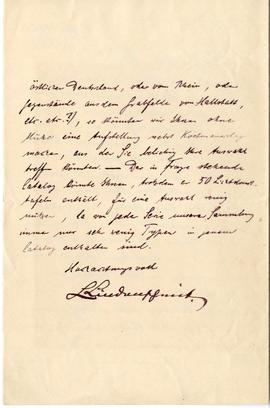 östlichen Deutschland, oder vom Rhein, oder
Gegenstände aus dem Grabfelde von Hallstatt,
etc. etc.?), so könnten wir Ihnen ohne
Mühe eine Aufstellung nebst Kostenanschlag
machen, aus der Sie beliebig Ihre Auswahl
treffen könnten — Der in Frage stehende
Catalog könnte Ihnen, trotzdem er 50 Lichtdruck-
tafeln enthält, für eine Auswahl wenig
nützen, da von jeder Serie unserer Sammlung
immer nur sehr wenig Typen in jenem
Catalog enthalten sind.
Hochachtungsvoll
L Lindenschmit.